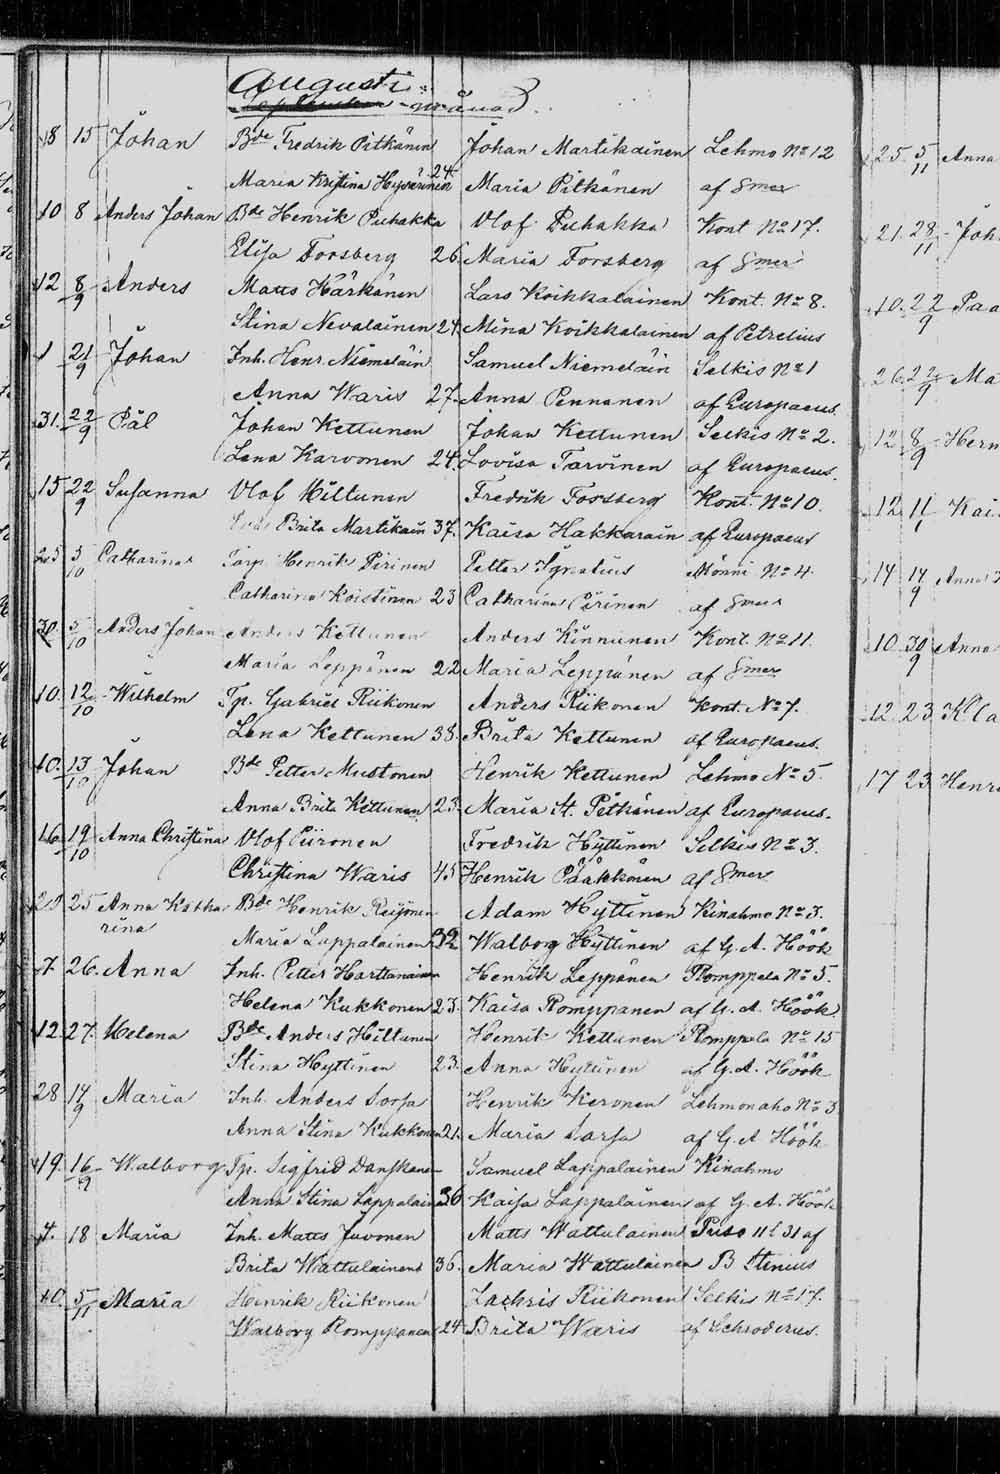 Augusti
månad.
18 15 Johan Bde Fredrik Pitkänen Johan Martikainen Lehmo No 12
Maria Kristina Hyvärinen 24. Maria Pitkänen af Smer
10 8 Anders Johan Bde Henrik Puhakka Olof Puhakka Kont No 17.
Elisa Forsberg 26. Maria Forsberg af Smer
12 8/9 Anders Matts Härkänen Lars Koikkalainen Kont. No 8.
Stina Nevalainen 24. Mina Koikkalainen af Petrelius
1 21/9 Johan Inh. Henr. Niemeläin Samuel Niemeläin Selkis No 1
Anna Waris 27. Anna Pennanen af Europaeus.
31. 22/9 Pål Johan Kettunen Johan Kettunen Selkis No 2.
Lena Karvonen 24. Lovisa Tarvinen af Europaeus.
15 22/9 Susanna Olof Hiltunen Fredrik Forsberg Kont. No 10.
Brita Martikain 37. Kaisa Hakkarain af Europaeus
25 5/10 Catharina Torp. Henrik Pirinen Petter Ignatius Mönni No 4.
Catharina Koistinen 23 Catharina Pirinen af Smer
30. 5/10 Anders Johan Anders Kettunen Anders Kinnunen Kont. No 11.
Maria Leppänen 22 Maria Leppänen af Smer
10. 12/10 Wilhelm Tp. Gabriel Riikonen Anders Riikonen Kont. No 7.
Lena Kettunen 38. Brita Kettunen af Europaeus.
10. 13/10 Johan Bde Petter Mustonen Henrik Kettunen Lehmo No 5.
Anna Brita Kettunen 23. Maria St. Pitkänen af Europaeus.
16. 19/10 Anna Christina Olof Piironen Fredrik Hyttinen Selkis No 3.
Christina Waris 45 Henrik Pääkkönen af Smer
25 Anna Katha Bde Henrik Reijonen Adam Hyttinen Kinahmo No 3.
rina
Maria Lappalainen 32 Walborg Hyttinen af G. A. Höök
7. 26. Anna Inh. Petter Harttunainen Henrik Leppänen Romppala No 5.
Helena Kukkonen 23. Kaisa Romppanen af G. A. Höök
12. 27. Helena Bde Anders Hiltunen Henrik Kettunen Romppala No 15
Stina Hyttinen 23. Anna Hyttinen af G. A. Höök
28 14/9 Maria Inh. Anders Sorsa Henrik Keronen Lehmonaho No 3
Anna Stina Kukkonen 21. Maria Sorsa af G. A Höök
19. 16/9 Walborg Tp. Sigfrid Danskanen Samuel Lappalainen Kinahmo
Anna Stina Lappalain 36 Kaisa Lappalainen af G. A. Höök
4. 18 Maria Inh. Matts Juvonen Matts Wattulainen Puso 11 l 31 af
Brita Wattulainen 36. Maria Wattulainen B Stenius
10. 5/11 Maria Henrik Riikonen Zachris Riikonen Selkis No 17.
Walborg Romppanen 24 Brita Waris af Schroderus.
25 5/11 Anna
21. 28/11 Joh
10. 22/9 Paa
26. 22/9 Ma
12 8/9 Herm
12. 11 Kai
14 14/9 Anna
10. 30/9 Anna
12. 23. Kla
17 23 Henri